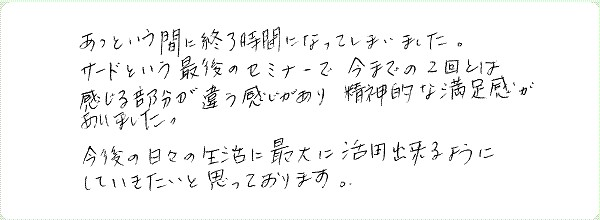 あっという間に終了時間になってしまいました。
サードという最後のセミナーで今までの2回とは
感じる部分が違う感じがあり 精神的な満足感が
ありました。
今後の日々の生活に最大に活用出来るように
していきたいと思っております。